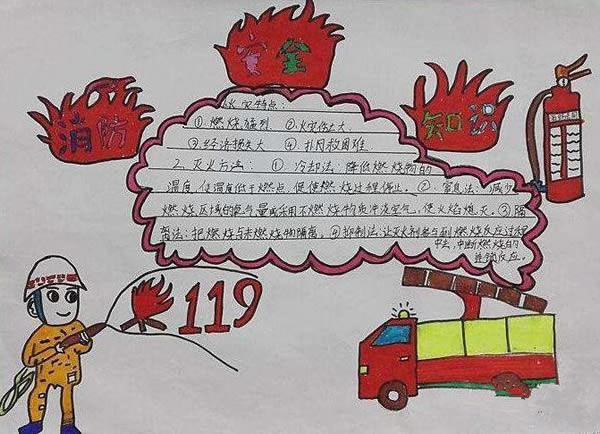 消防
安全
知识
火灾特点:
①燃烧猛烈. ②火灾伤亡大
③经济损失大 ④扑救困难
2.灭火方法: ①冷却法:降低燃烧物的
温度,使温度低于燃点,促使燃烧过程停止. ②窒息法:减少
燃烧区域的氧气量或采用不燃烧物质冲淡空气,使火焰熄灭.③隔
离法:把燃烧与未燃烧物隔离.④抑制法:让灭火剂参与到燃烧反应过程
中去,中断燃烧的
连锁反应.
119